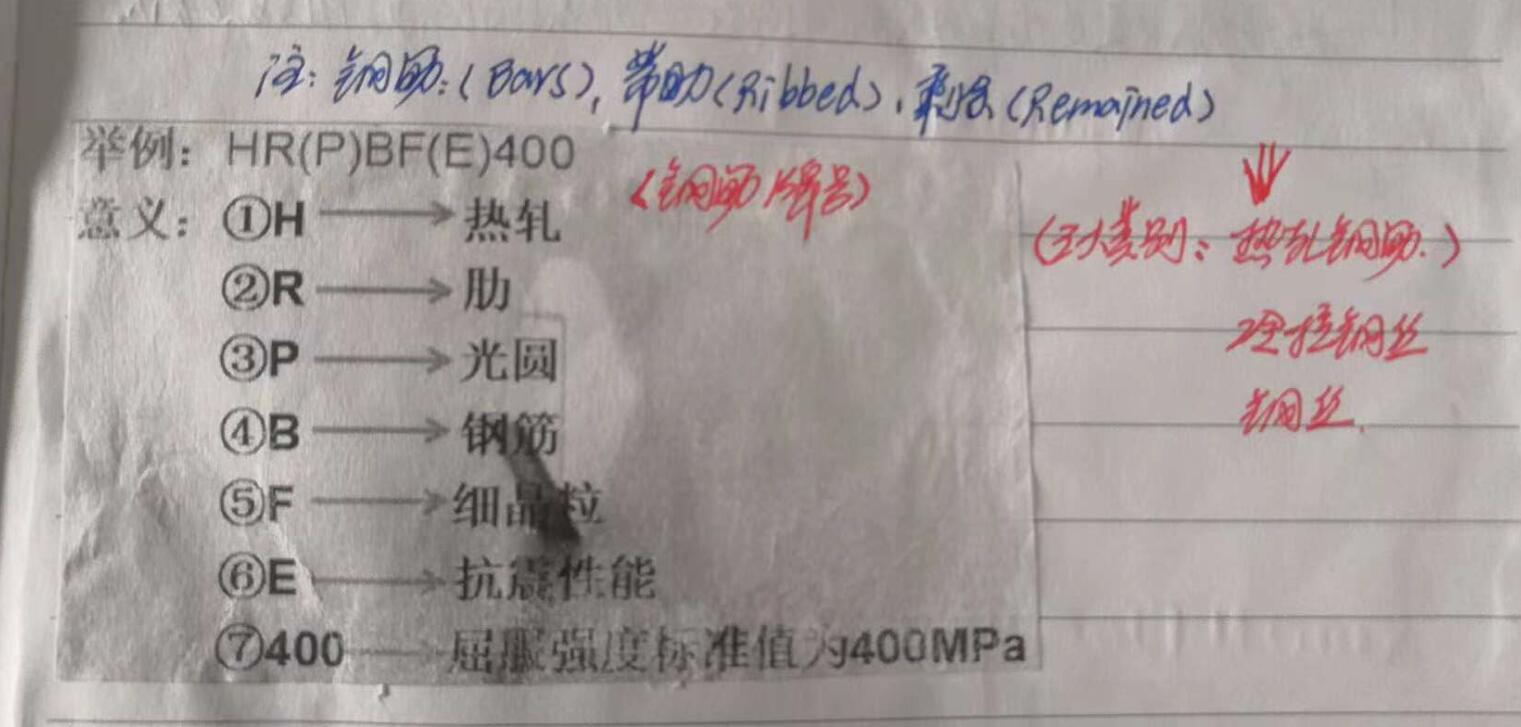 注: 钢筋:(Bars), 带肋(Ribbed), 剩余(Remained)
举例: HR(P)BF(E)400
<钢筋牌号>
意义: ①H → 热轧
②R → 肋
③P → 光圆
④B → 钢筋
⑤F → 细晶粒
⑥E → 抗震性能
⑦400 → 屈服强度标准值为400MPa
(三大类别: 热轧钢筋.)
冷拉钢丝
钢丝.